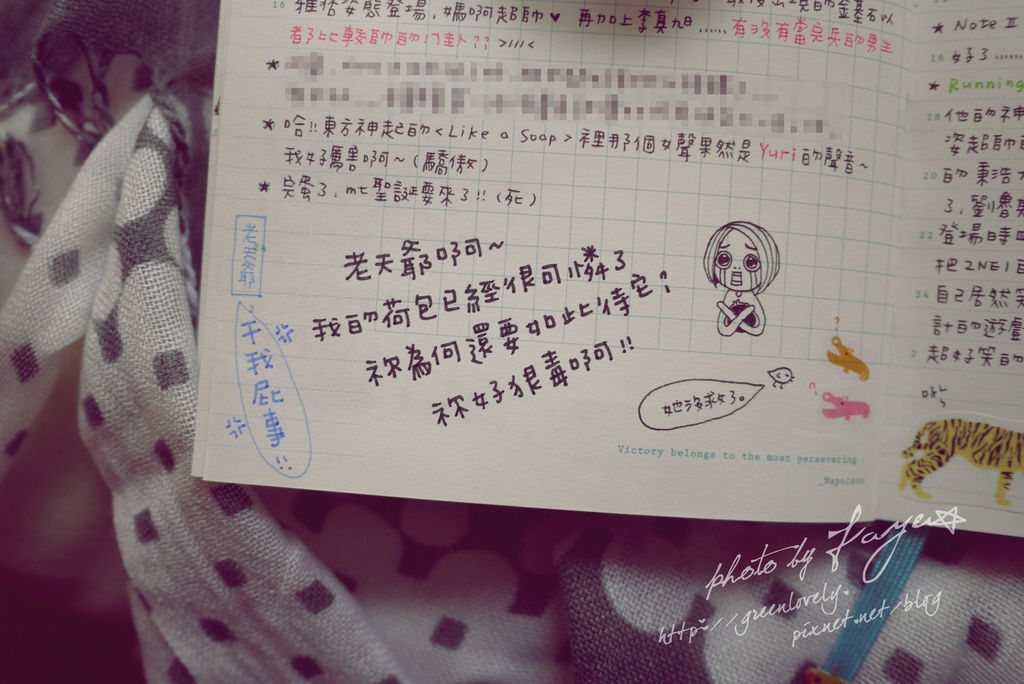 雅痞姿態登場,媽啊超帥♥ 再加上李真旭......有沒有當完兵的男生
都比較帥的八卦?? >///<
★哈!!東方神起的<Like a Soap>裡那個女聲果然是Yuri的聲音~
我好厲害啊~(驕傲)
★完蛋了,mt聖誕要來了!!(死)
老天爺
老天爺啊~
我的荷包已經很可憐了
祢為何還要如此待它?
祢好狠毒啊!!
干我屁事!!
她沒救了。
Victory belongs to the most persevering
_Napoleon
★ Note II
16 好了......
★ Running
18 他的神
姿超帥
20 的 秉浩
了,劉魯
22 登場時
把2NE1
24 自己居然
計的遊
2 超好笑的
photo by Faye☆
http://greenlovely.
pixnet.net/blog